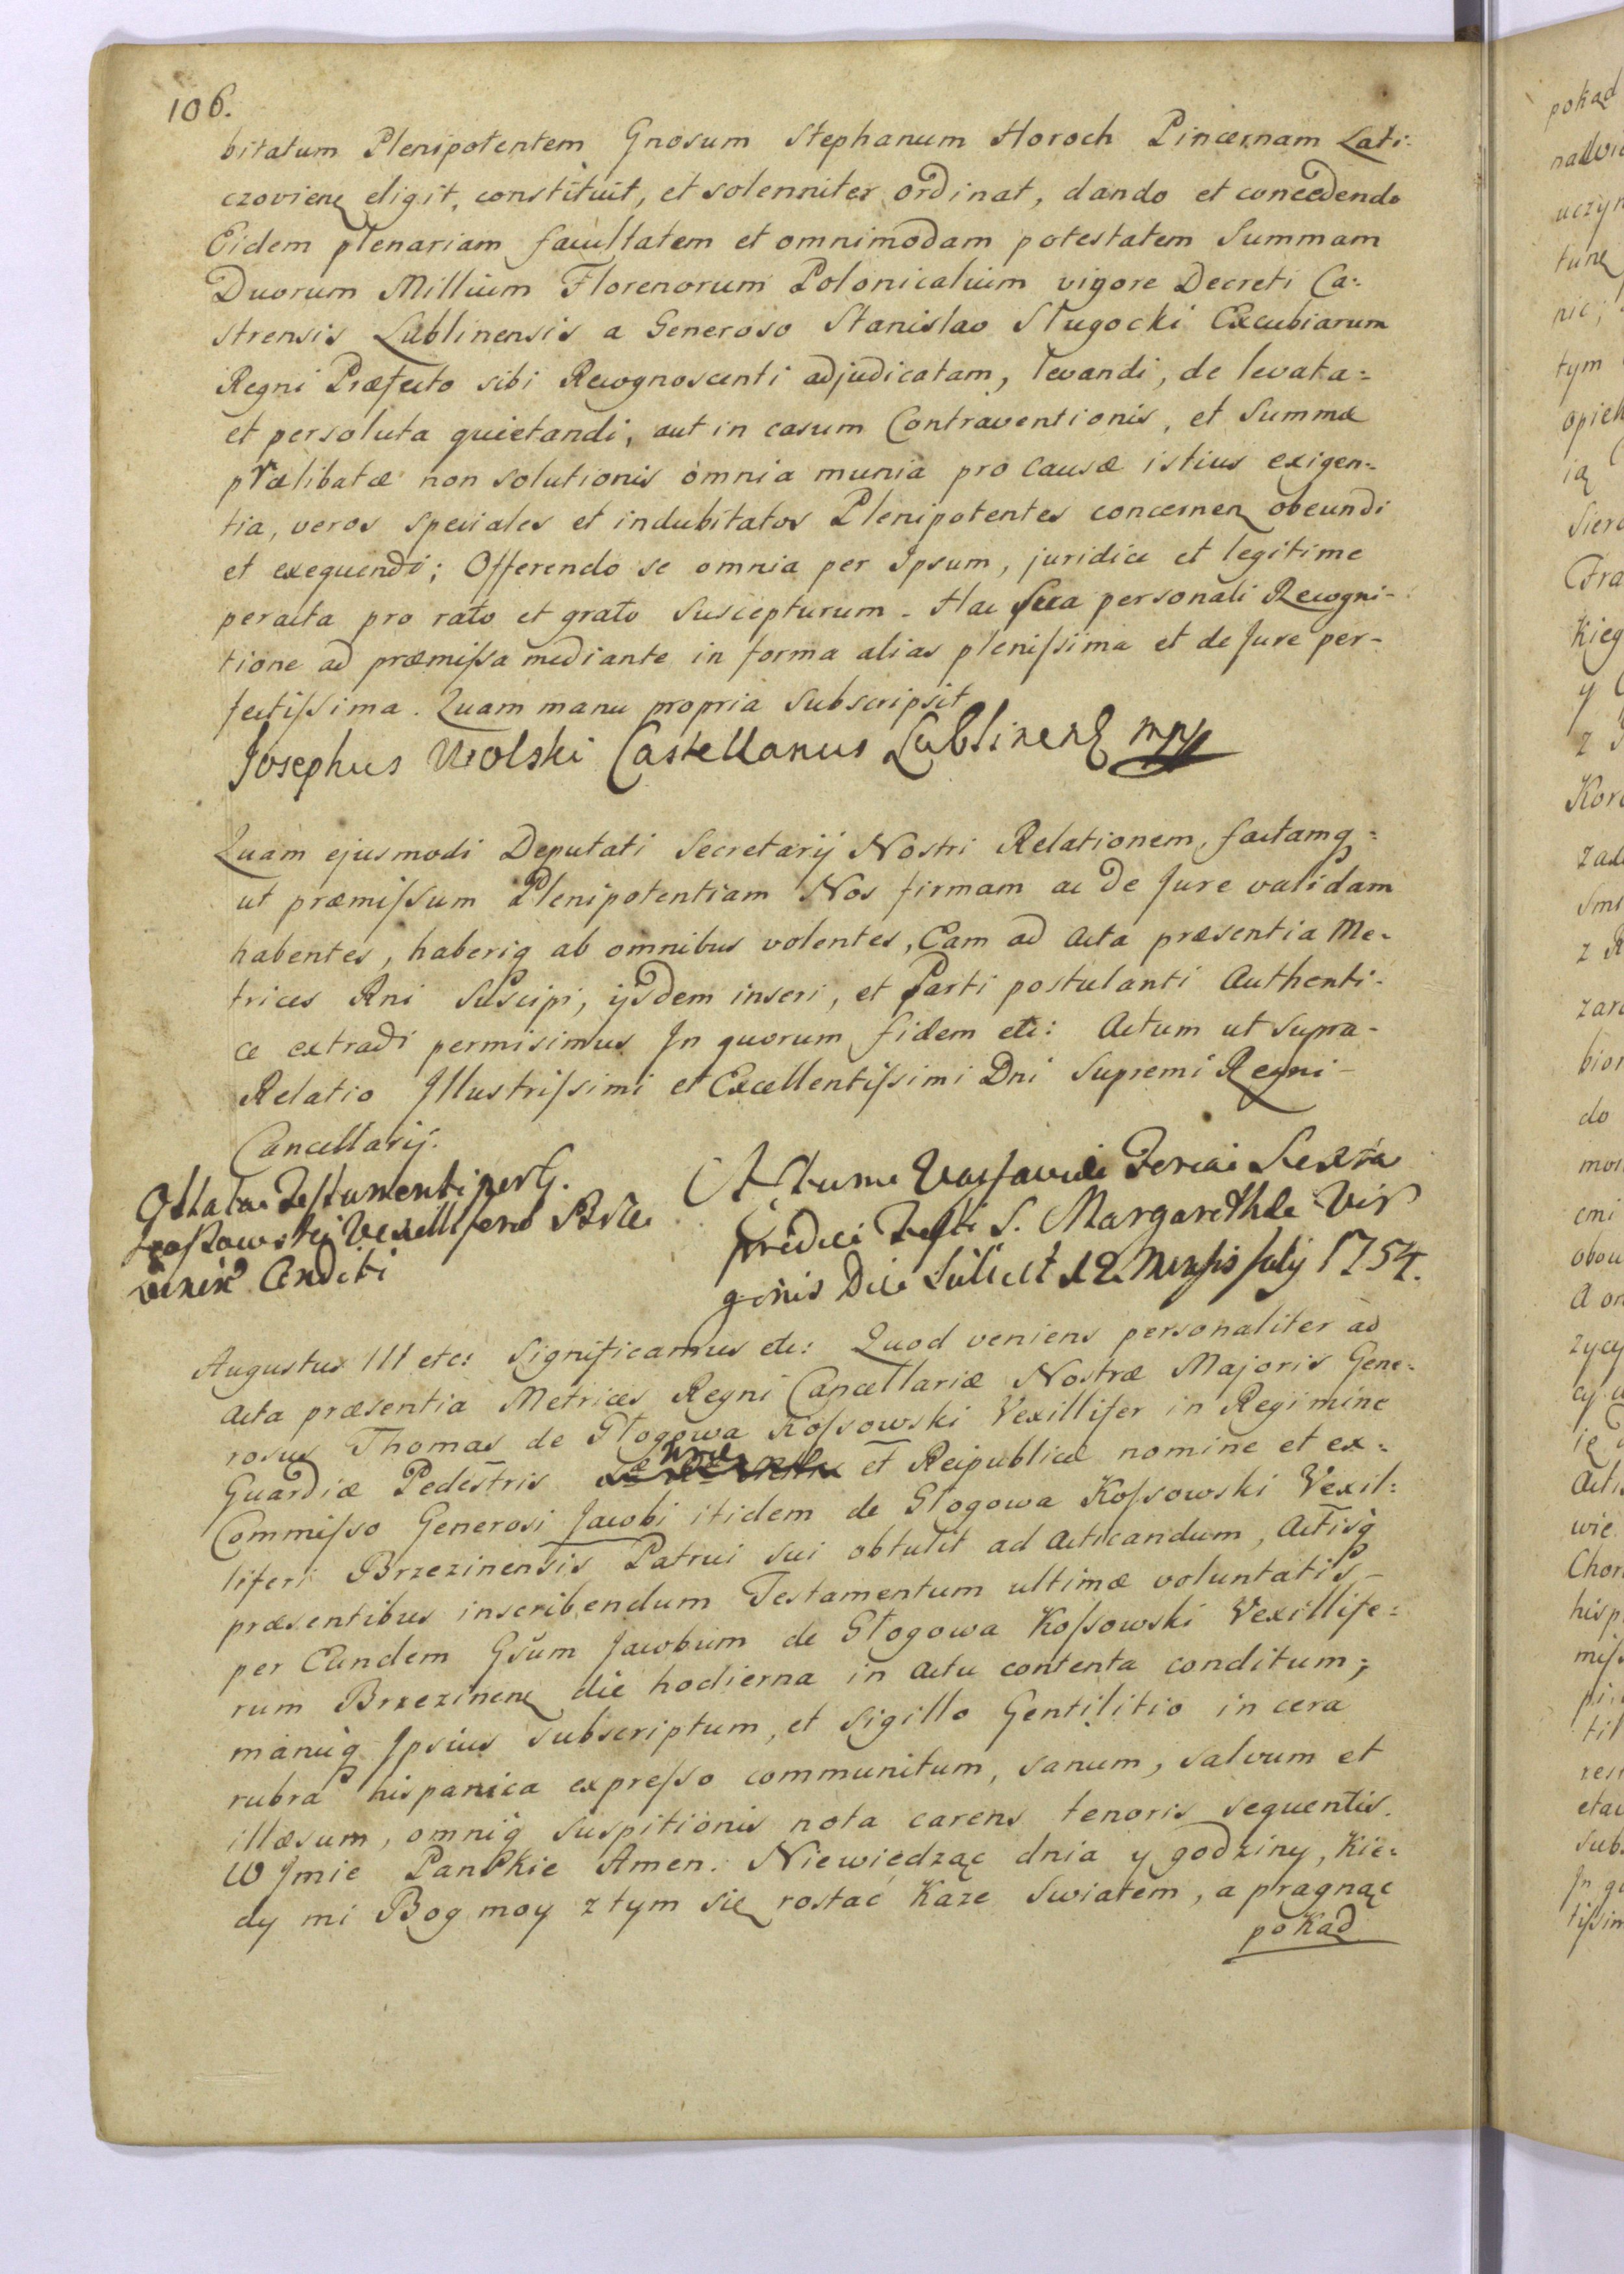 106.
bitatum Plenipotentem Gnosum Stephanum Horoch Pincernam Lati:
czoviens eligit, constituit, et solenniter ordinat, dando et concedendo
Eidem plenariam facultatem et omnimodam potestatem Summam
Duorum Millium Florenorum Polonicalium vigore Decreti Ca:
strensis Lublinensis a Generoso Stanislao Sługocki Excubiarum
Regni Præfecto sibi Recognoscenti adjudicatam, levandi, de levata=
et persoluta quietandi, aut in casum Contraventionis, et Summæ
prælibatæ non solutionis omnia munia pro causæ istius exigen=
tia, veros speciales et indubitatos Plenipotentes concernen obeundi
et exequendi; Offerendo se omnia per Ipsum, juridice et legitime
peracta pro rato et grato suscepturum. Hac sua personali Recogni-
tione ad præmiſsa mediante in forma alias pleniſsima et de Jure per-
fectiſsima. Quam manu propria subscripsit
Josephus Wolski Castellanus Lublinens mpp
Quam ejusmodi Deputati Secretarij Nostri Relationem, factamq=
ut præmiſsum Plenipotentiam Nos firmam ac de Jure validam
habentes, haberiq ab omnibus volentes, Eam ad Acta præsentia Me-
trices Rni Suscipi, ijsdem inseri, et Parti postulanti Authenti-
ce extradi permisimus In quorum fidem etc: Actum ut supra-
Relatio Illustriſsimi et Excellentiſsimi Dni Supremi Regni-
Cancellarij.
Oblata Testamenti per G.
Koſsowski Vexilliferum Brze
zinen Conditi
Actum Varsaviæ Feria Sexta
pridie Festi S. Margarethæ Vir
ginis Die Scilicet 12 Mensis Julij 1754.
Augustus III etc: Significamus etc: Quod veniens personaliter ad
Acta præsentia Metrices Regni Cancellariæ Nostræ Majoris Gene-
rosus Thomas de Głogowa Koſsowski Vexillifer in Regimine
Guardiæ Pedestris et Reipublicæ nomine et ex=
Commiſso Generosi Jacobi itidem de Głogowa Koſsowski Vexil=
liferi Brzezinensis Patrui sui obtulit ad Acticandum, Actisq
præsentibus inscribendum Testamentum ultimæ voluntatis-
per Eundem Gsum Jacobum de Głogowa Koſsowski Vexillife=
rum Brzezinens die hodierna in Actu contenta conditum;
manuq Ipsius subscriptum, et Sigillo Gentilitio in cera
rubra hispanica expreſso communitum, sanum, salvum et
illæsum, omniq suspitionis nota carens tenoris sequentis.
W Jmie Panskie Amen. Niewiedząc dnia y godziny, kie=
dy mi Bog moy z tym się rostać każe Swiatem, a pragnąc
pokad